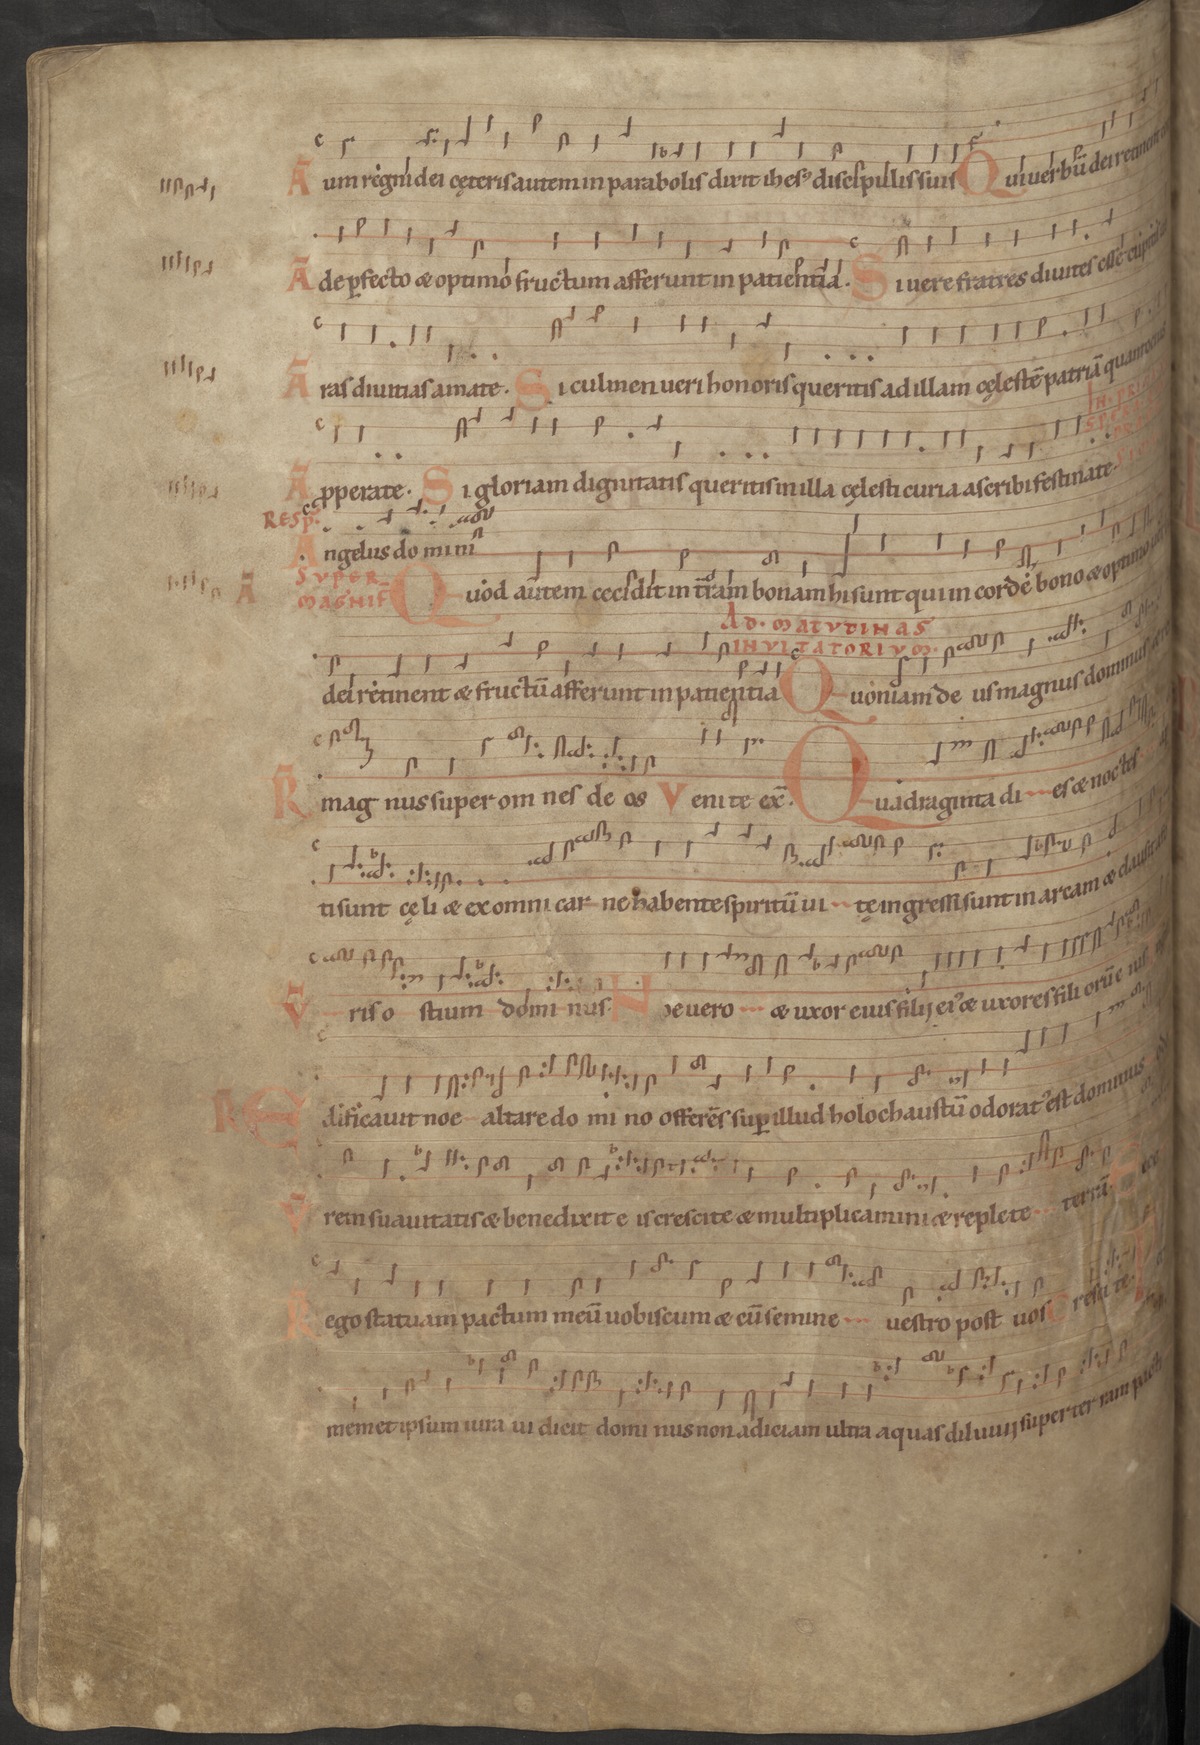 Ā um regni dei cęteris autem in parabolis dixit ihes' discipulis suis Qui uerbū dei retinent
Ā de pfecto & optimo fructum afferunt in patientia. Si uere fratres diuites esse cupitis
Ā ras diuitias amate. Si culmen ueri honoris queritis ad illam cęlestē patriā quantocius
IN. PRI
SPERA
Ā pperate. Si gloriam dignitatis queritis in illa cęlesti curia ascribi festinate.
RESP.
Angelus domini
SVPER
MAGNIF
Ā Quod autem cecidit in tram bonam hi sunt qui in corde bono & optimo
AD. MATVTINAS
INVITATORIVM.
dei retinent & fructū afferunt in patientia Quoniam de us magnus dominus
R mag nus super om nes de os Venite ex. Quadraginta di es & noctes
ti sunt cęli & ex omni car ne habente spiritū ui tę ingressi sunt in arcam & clausit
V ris o stium domi nus. Noe uero & uxor eius filij ei' & uxores filiorū e ius
R Edificauit noe altare do mi no offerēs sup illud holochaustū odorat' est dominus
V rem suauitatis & benedixit e is crescite & multiplicamini & replete terrā. Ecce
R ego statuam pactum meū uobiscum & cū semine uestro post uos Cresci te
memetipsum iura ui dicit domi nus non adiciam ultra aquas diluuij super ter ram pacti